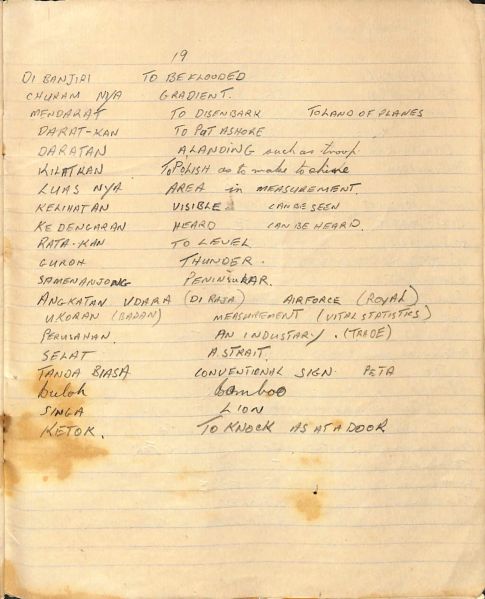 19
DI BANJIRI TO BE FLOODED
CHURAM NYA GRADIENT.
MENDARAT TO DISENBARK TO LAND OF PLANES
DARAT-KAN TO PUT ASHORE
DARATAN A LANDING such as troop
KILATKAN TO POLISH as to make to shine
LUAS NYA AREA in MEASUREMENT.
KELIHATAN VISIBLE CAN BE SEEN
KEDENGARAN HEARD CAN BE HEARD.
RATA-KAN TO LEVEL
GUROH THUNDER.
SAMENANJONG PENINSULAR.
ANGKATAN UDARA (DI RAJA) AIRFORCE (ROYAL)
UKORAN (BADAN) MEASUREMENT (VITAL STATISTICS)
PERUSAHAN AN INDUSTARY. (TRADE)
SELAT A STRAIT.
TANDA BIASA CONVENTIONAL SIGN PETA
buloh bamboo
SINGA LION
KETOK. TO KNOCK AS AT A DOOR